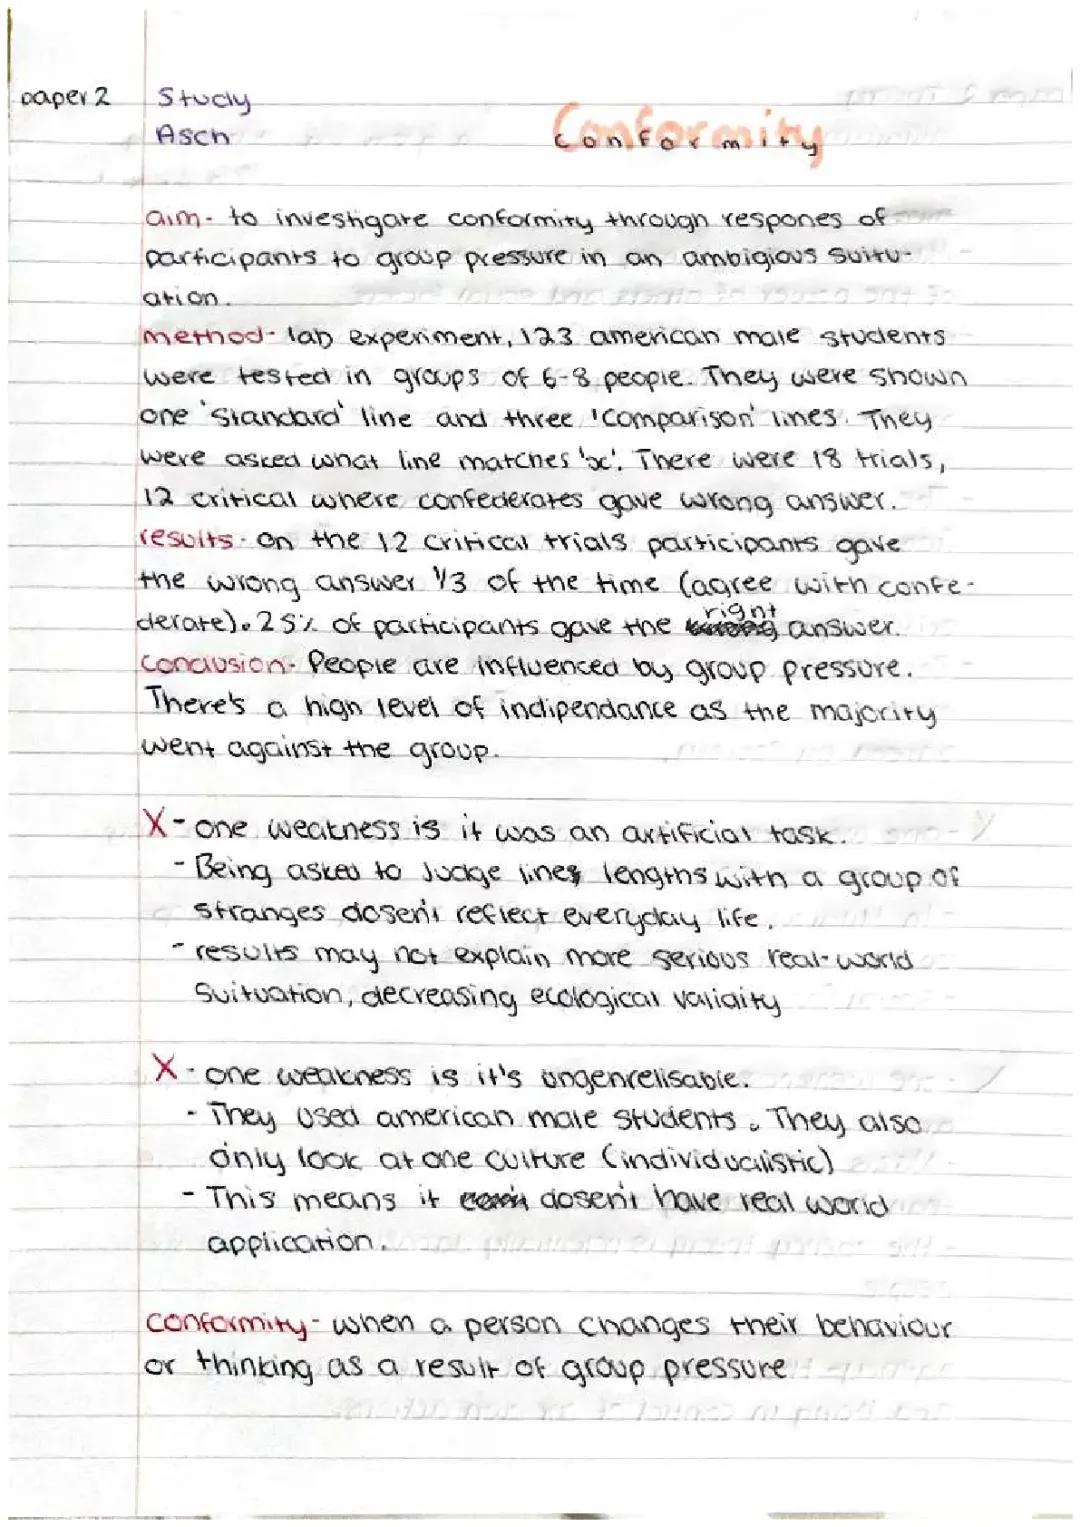 paper 2
Study
Asch
Conformity
aim- to investigate conformity through respones of
participants to group pressure in an ambigious suitu-
ation.
method- lab experiment, 123 american male students
were tested in groups of 6-8 people. They were shown
one 'standard' line and three 'comparison' lines. They
were asked what line matches 'x'. There were 18 trials,
12 critical where confederates gave wrong answer.
results- on the 12 critical trials participants gave
the wrong answer 1/3 of the time (agree with confe-
derate). 25% of participants gave the right answer.
conclusion- People are influenced by group pressure.
There's a high level of indipendance as the majority
went against the group.
X - one weakness is it was an artificial task.
- Being asked to judge lines lengths with a group of
stranges dosen't reflect everyday life.
- results may not explain more serious real-world
suituation, decreasing ecological validity
X - one weakness is it's ungenrelisable.
- They used american male students. They also
only look at one culture (individualistic)
- This means it dosen't have real world
application.
conformity- when a person changes their behaviour
or thinking as a result of group pressure